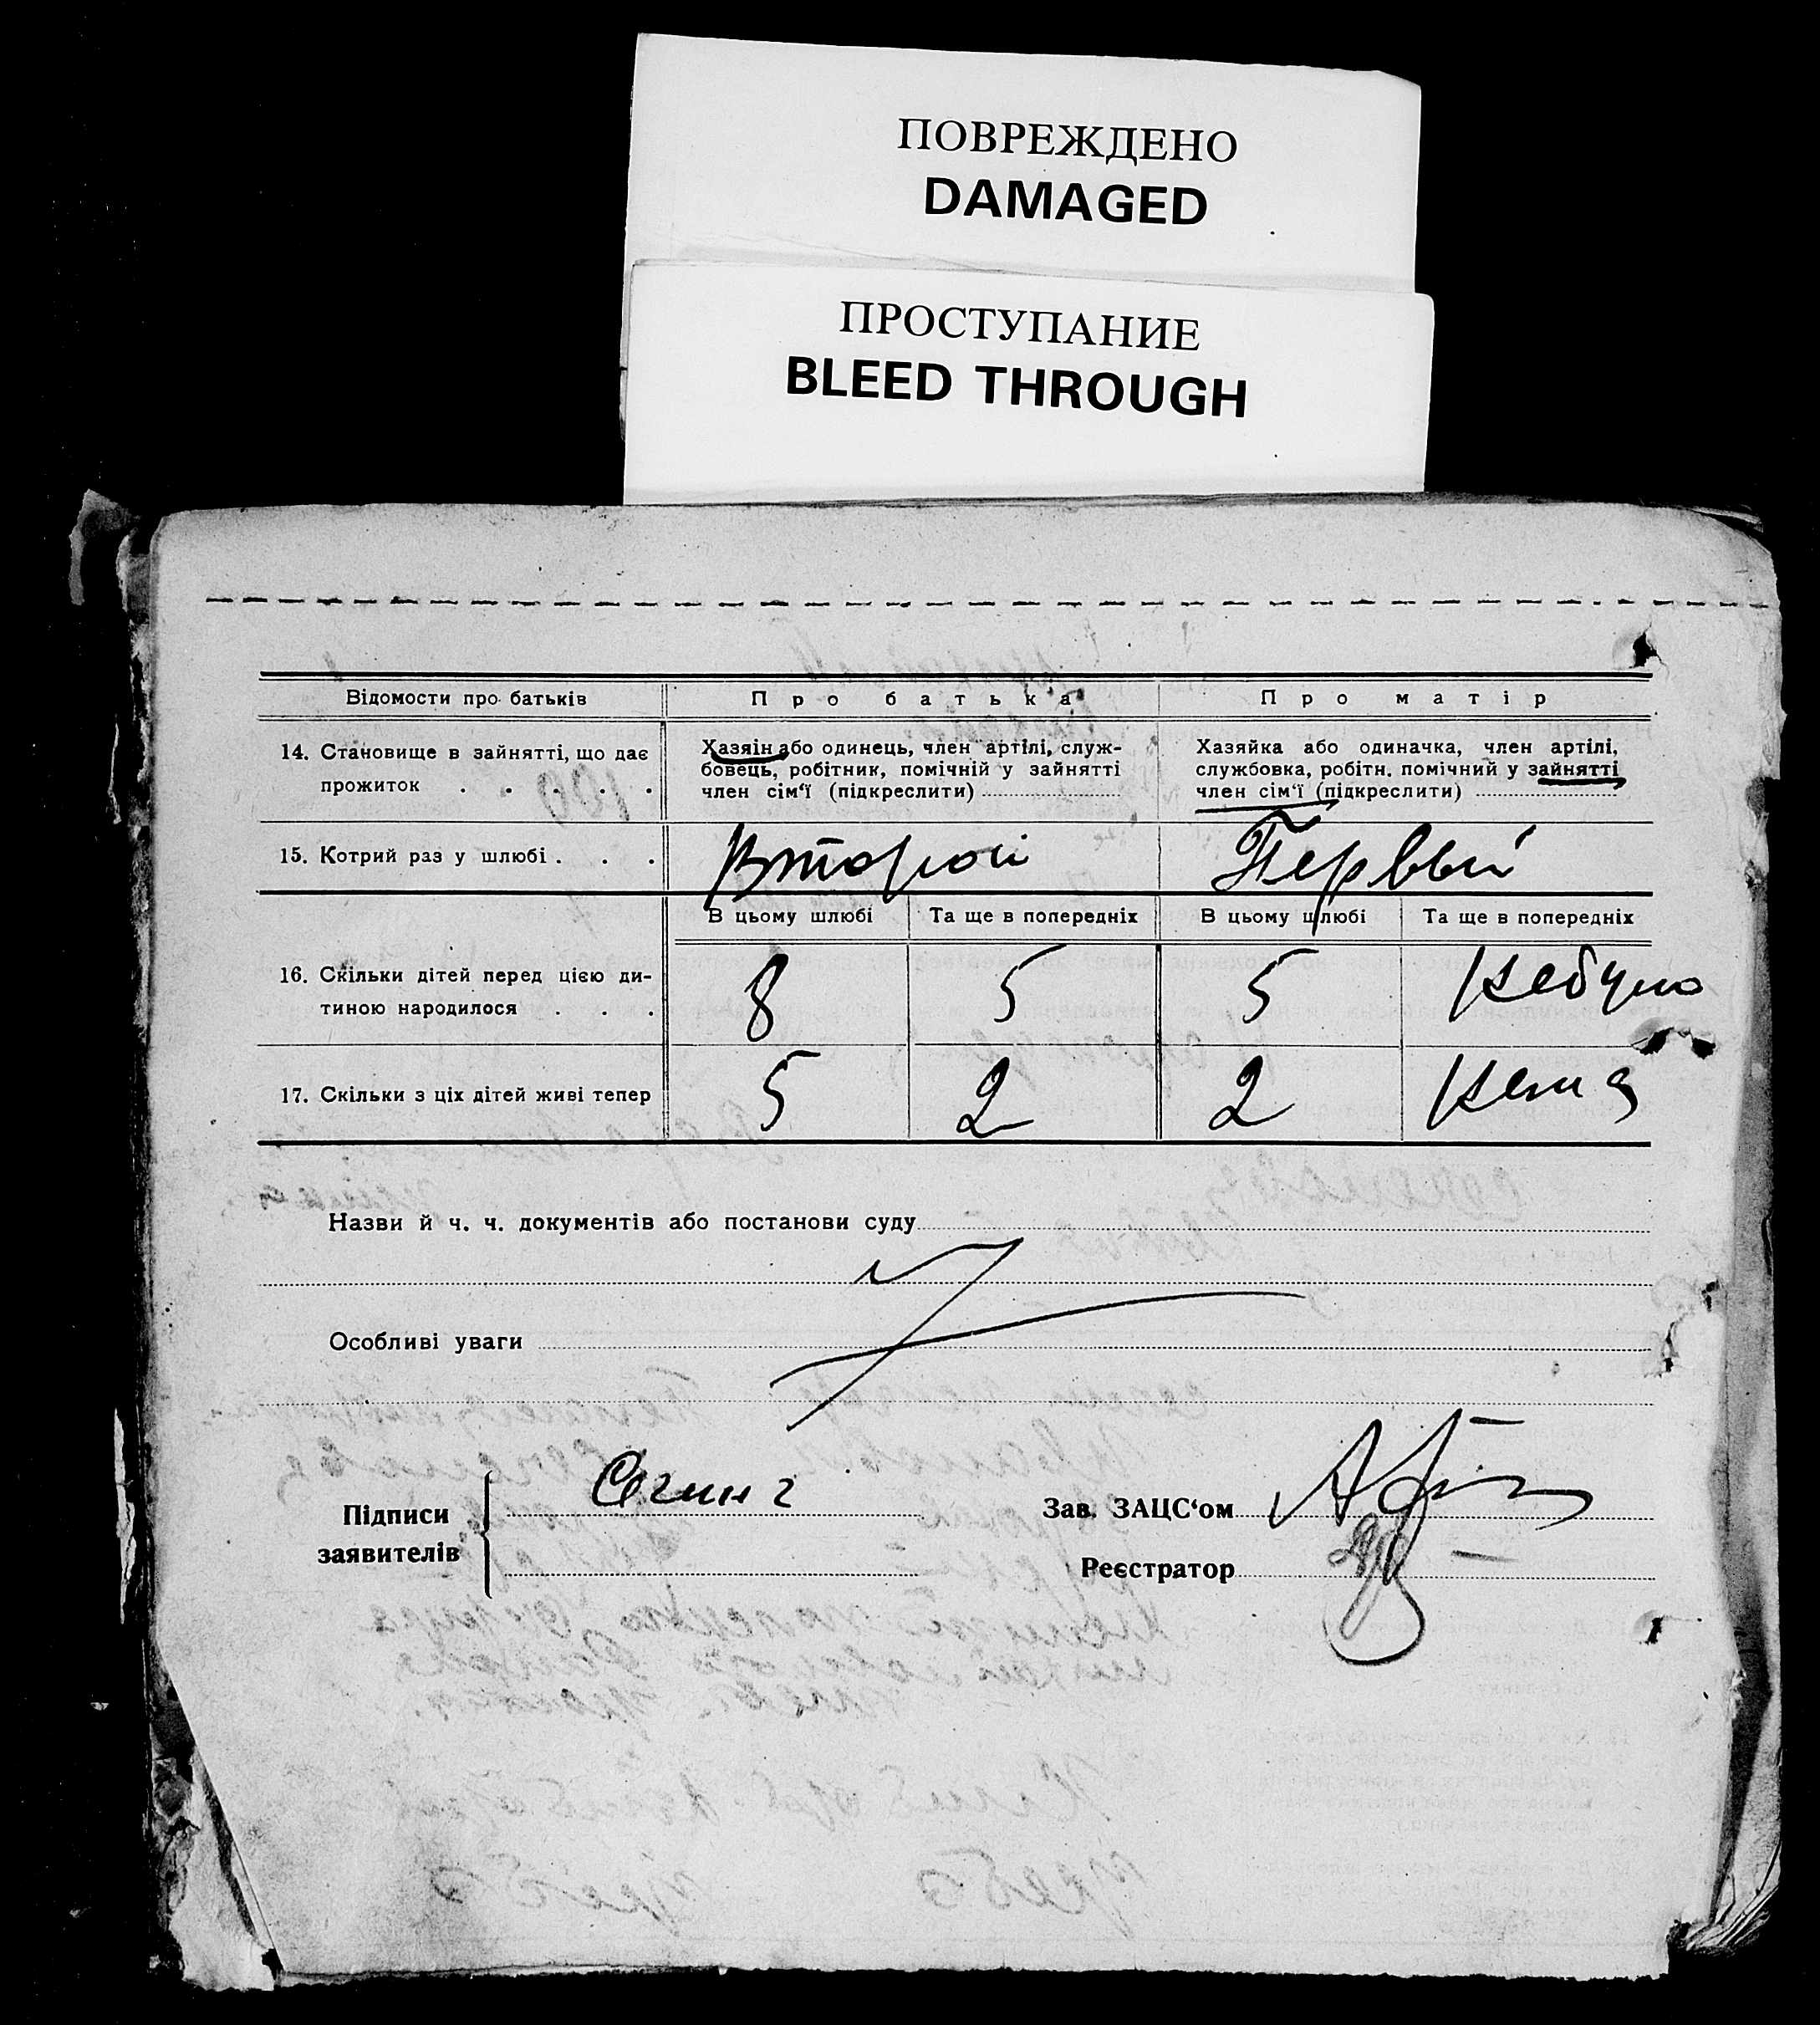 ПОВРЕЖДЕНО
DAMAGED
ПРОСТУПАНИЕ
BLEED THROUGH
Відомости про батьків
Про батька
Про матір
14. Становище в зайнятті, що дає
прожиток . . . . .
Хазяін або одинець, член артілі, служ-
бовець, робітник, помічній у зайнятті
член сім‘ї (підкреслити)
Хазяйка або одиначка, член артілі,
службовка, робітн. помічний у зайнятті
член сім‘ї (підкреслити)
15. Котрий раз у шлюбі . . .
Второй
Первый
В цьому шлюбі
Та ще в попередніх
В цьому шлюбі
Та ще в попередніх
16. Скільки дітей перед цією ди-
тиною народилося . . .
8
5
5
небуло
17. Скільки з ціх дітей живі тепер
5
2
2
Назви й ч. ч. документів або постанови суду
Особливі уваги
Підписи
заявителів
Зав. ЗАЦС‘ом
Реєстратор